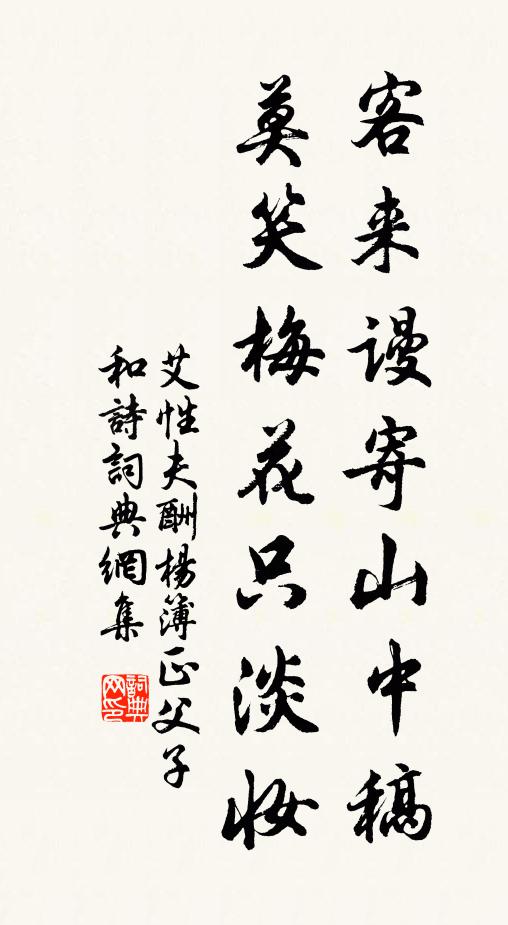 客来謾寄山中稿
莫笑梅花只淡妝
艾性夫酬楊簿正父子
和詩詞典網集
詞典
网印